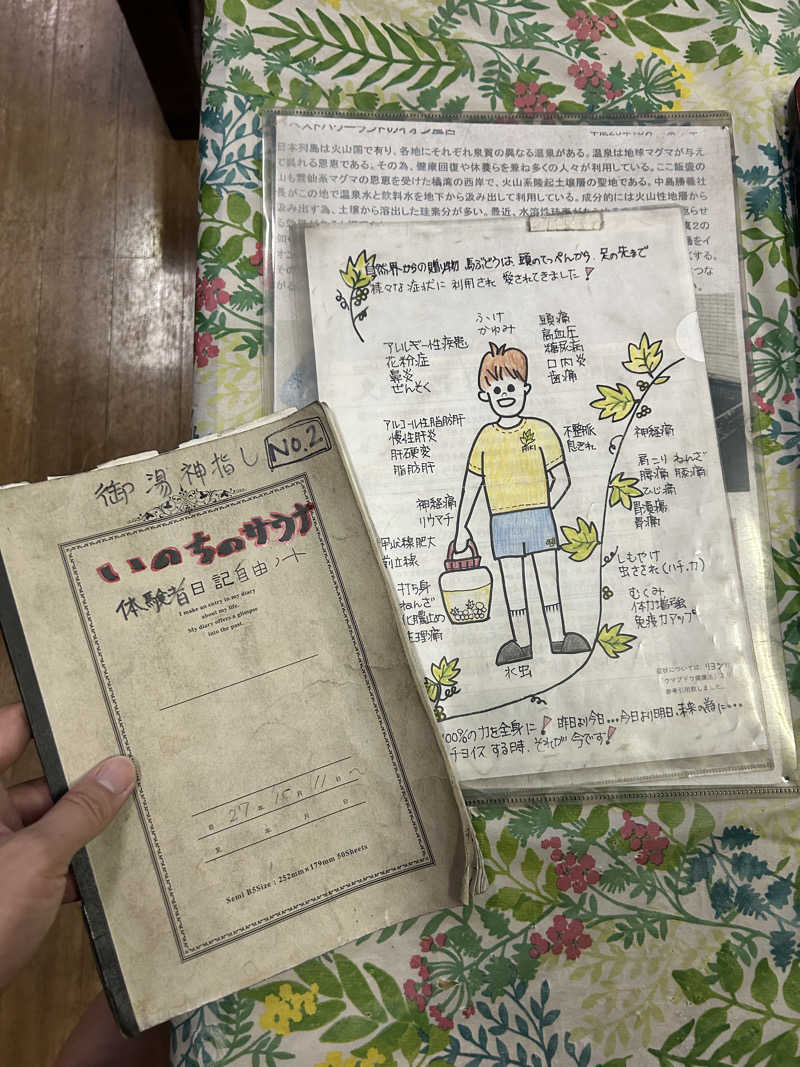 御湯神指し
NO.2
いのちのサウナ
体験者日記自由ノート
I make an entry in my diary
about my life.
My diary offers a glimpse
into the past.
27年
11日~
年 月 日
Semi B5Size : 252mm×179mm 50Sheets
日本列島は火山国で有り、各地にそれぞれ泉質の異なる温泉がある。温泉は地球マグマが与え
て呉れる恩恵である。その為、健康回復や休養らを兼ね多くの人々が利用している。ここ飯盛の
山も雲仙系マグマの恩恵を受けた橘湾の西岸で、火山系隆起土壌層の聖地である。中島勝義社
長がこの地で温泉水と飲料水を地下から汲み出して利用している。成分的には火山性地層から
汲み出す為、土壌から溶出した珪素分が多い。最近、水溶性珪素が
自然界からの贈り物 馬ぶどうは、頭のてっぺんから、足の先まで
様々な症状に利用され 愛されてきました!
ふけ
かゆみ
頭痛
高血圧
糖尿病
口内炎
歯痛
アレルギー性疾患
花粉症
鼻炎
ぜんそく
アルコール性脂肪肝
慢性肝炎
肝硬変
脂肪肝
不整脈
息ぎれ
神経痛
肩こり ねんざ
腰痛 膝痛
ひじ痛
胃潰瘍
胃痛
神経痛
リウマチ
甲状線肥大
前立線
しもやけ
虫さされ(ハチ、カ)
打ち身
ねんざ
化膿止め
生理痛
むくみ
体力増強
免疫力アップ
水虫
症状については、
「ウマブドウ健康法」
参考引用致しました。
100%の力を全身に! 昨日より今日...今日より明日、未来の為に...
チョイスする時、それが今です!